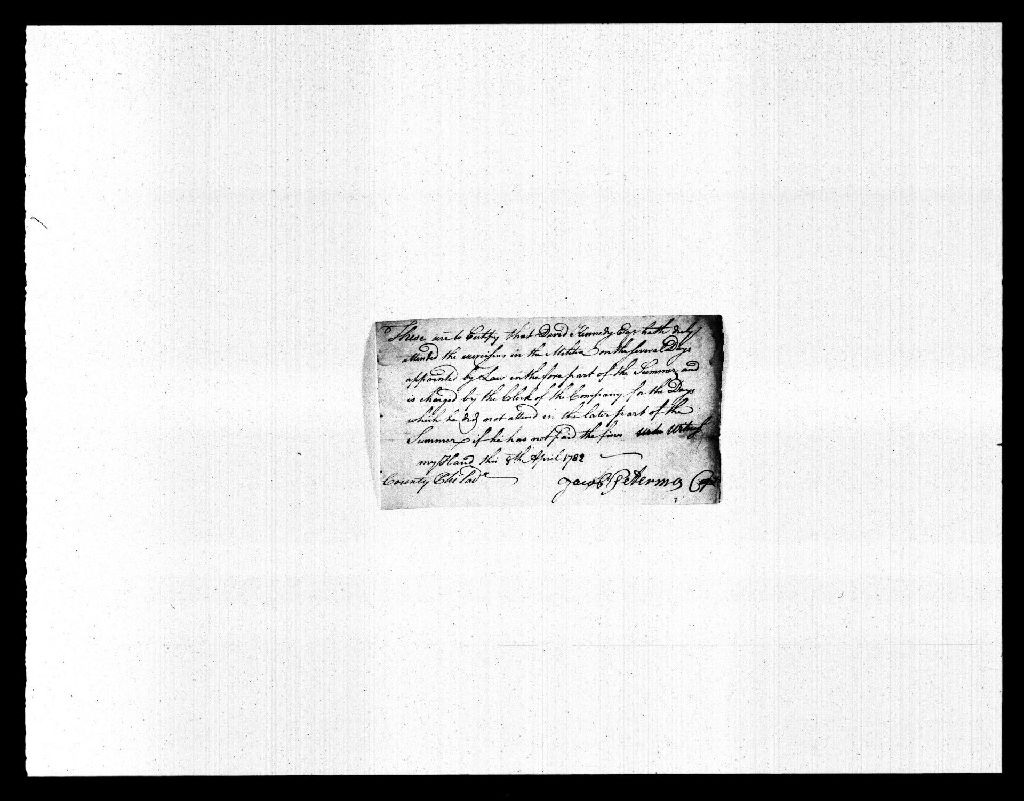 These are to Certify that David Kennedy Esqr hath duly
attended the exercises in the Militia on the several Days
appointed by Law in the fore part of the Summer and
is charged by the Clerk of the Company for the Days
which he did not attend in the later part of the
Summer if he has not paid the fines Witness
my Hand this 8th April 1782
County Phil
Jacob Peterman Capt